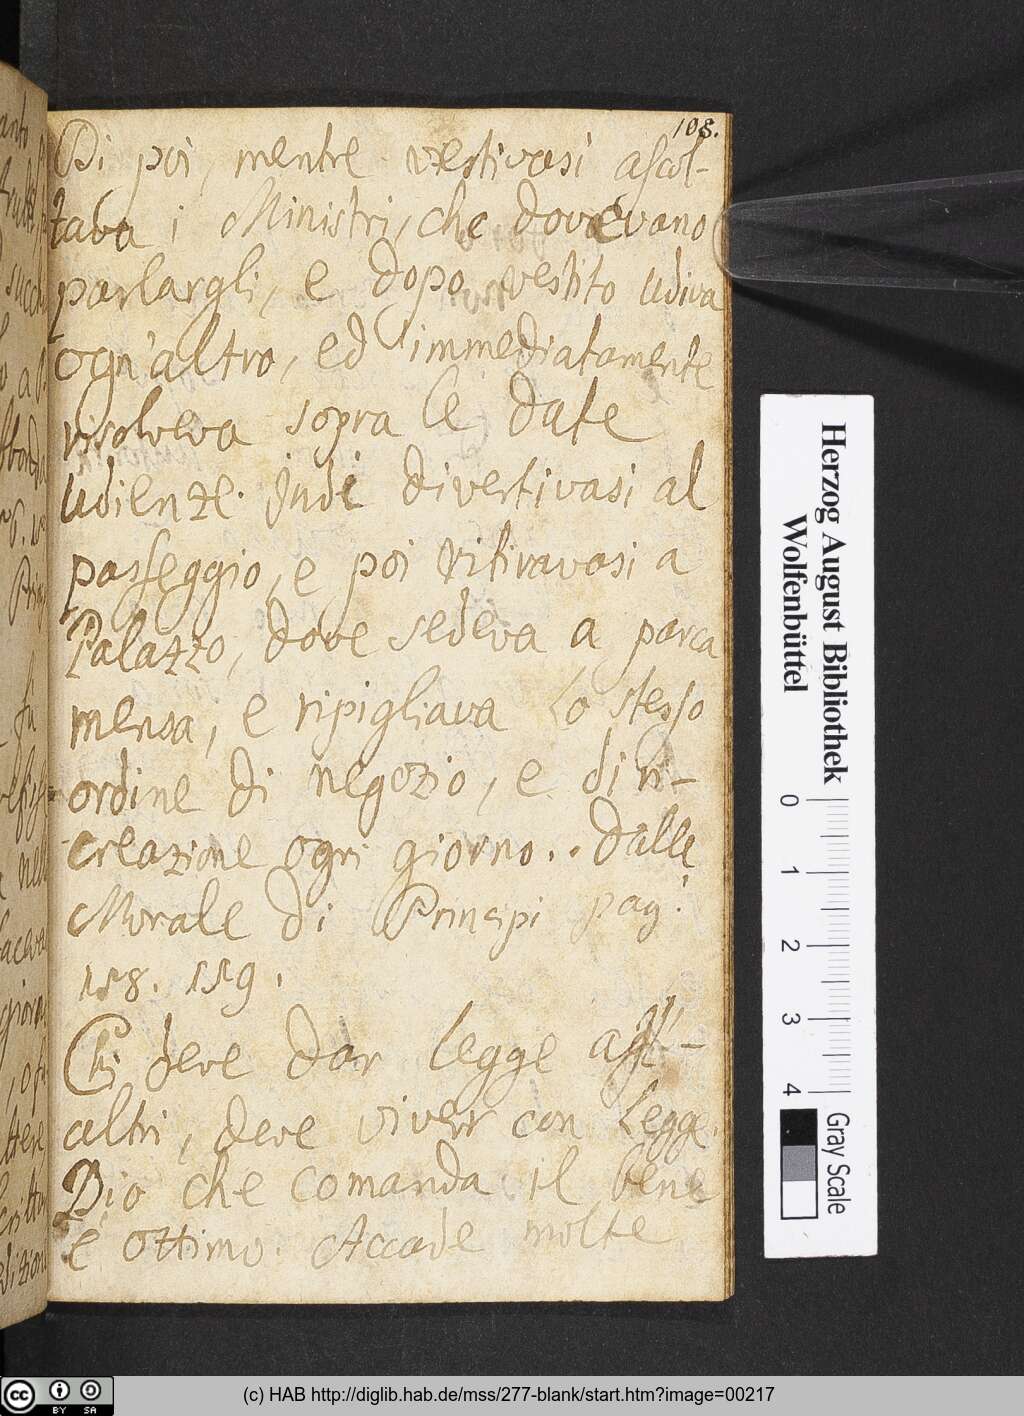 108.
Di poi, mentre vestivasi ascol-
tava i Ministri, che dovevano
parlargli, e dopo vestito udiva
ogn'altro, ed immediatamente
risolveva sopra le date
udienze. Indi divertivasi al
passeggio, e poi ritiravasi a
Palazzo, dove sedeva a parca
mensa, e ripigliava lo stesso
ordine di negozio, e di ri-
creazione ogni giorno.. Dalle
Morale di Principi pag:
158. 159.
Chi deve dar legge agl'-
altri, deve viver con legge.
Dio che comanda il bene
é ottimo. Accade molte
Herzog August Bibliothek
Wolfenbüttel
0 1 2 3 4
Gray Scale
cc BY SA
(c) HAB http://diglib.hab.de/mss/277-blank/start.htm?image=00217